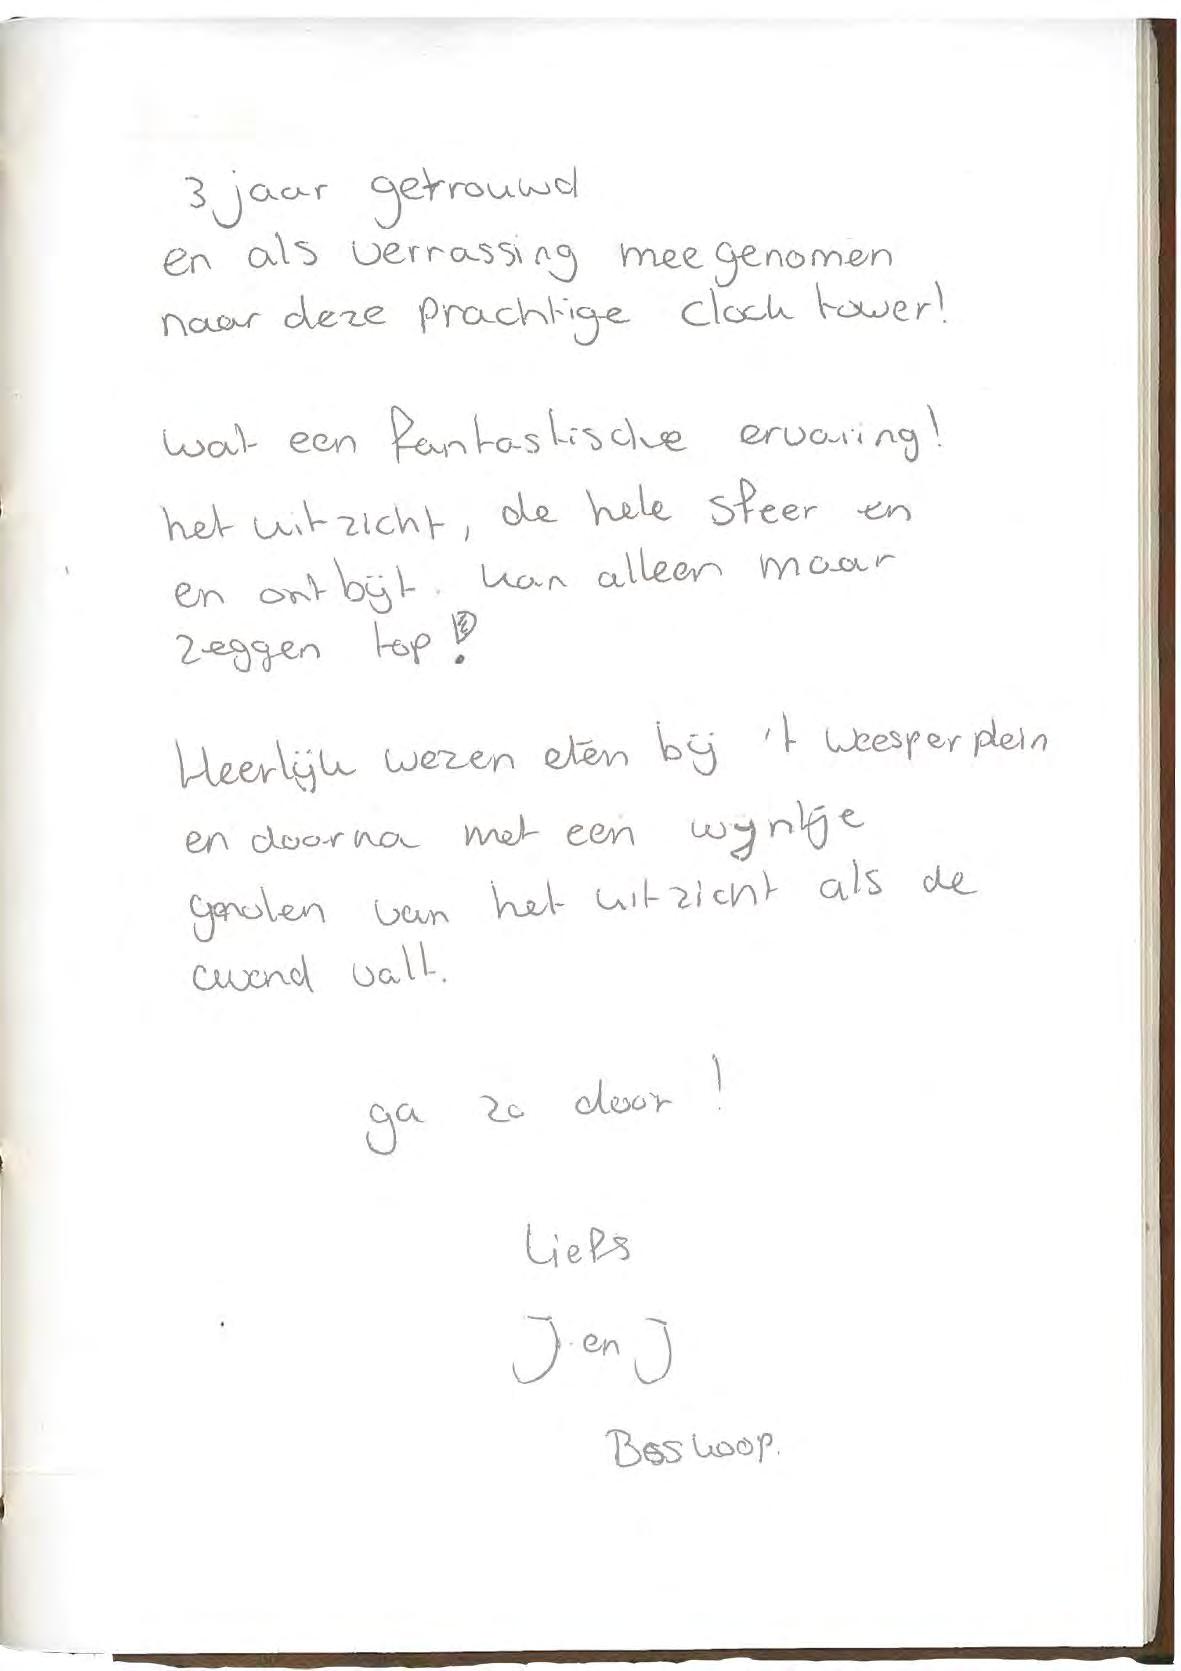 3 jaar getrouwd
en als verrassing meegenomen
naar deze prachtige clock tower!
wat een fantastische ervaring!
het uitzicht, de hele sfeer en
en ontbijt. kan alleen maar
zeggen top!
Heerlijk wezen eten bij 't weesperplein
en daarna met een wijntje
genoten van het uitzicht als de
avond valt.
ga zo door!
Liefs
J en J
Boskoop.